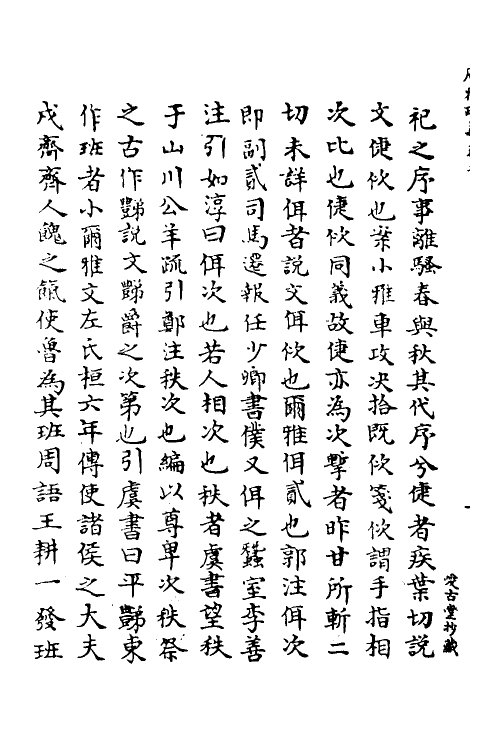 祀之序事離騷春與秋其代序兮倢者疾葉切說
文倢佽也案小雅車攻决拾既佽箋佽謂手指相
次比也倢佽同義故倢亦為次㨗者昨甘所斬二
切未詳佴者說文佴佽也爾雅佴貳也郭注佴次
即副貳司馬遷報任少卿書僕又佴之蠶室李善
注引如淳曰佴次也若人相次也秩者虞書望秩
于山川公羊疏引鄭注秩次也編以尊卑次秩祭
之古作豑說文豑爵之次第也引虞書曰平豑東
作班者小爾雅文左氏桓六年傳使諸侯之大夫
戍齊齊人餽之餼使魯為其班周語王耕一發班
安古堂抄藏